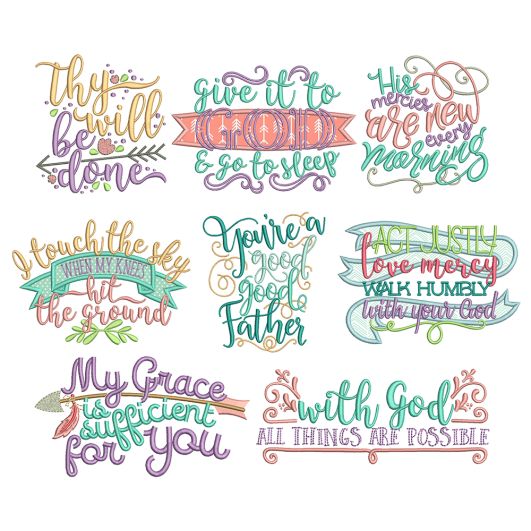 Thy
will
be
done
give it to
GOD
& go to sleep
His
mercies
are new
every
morning
I touch the sky
WHEN MY KNEES
hit
the ground
You're a
good
good
Father
ACT JUSTLY
love mercy
WALK HUMBLY
with your God
My Grace
is
sufficient
for YOU
with God
ALL THINGS ARE POSSIBLE